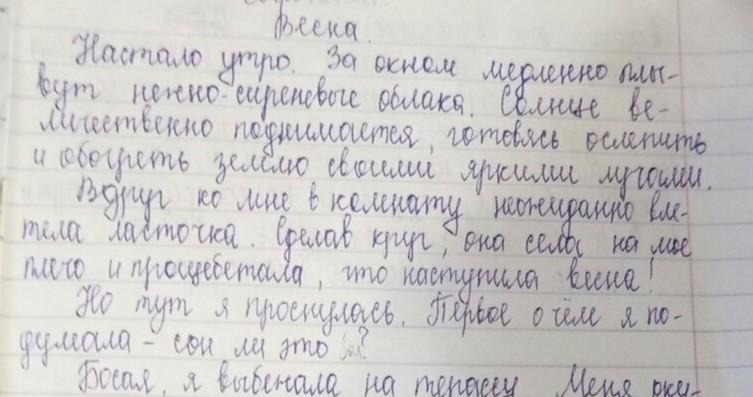 Весна.
Настало утро. За окном медленно плы-
вут нежно-сиреневые облака. Солнце ве-
личественно поднимается, готовясь ослепить
и обогреть землю своими яркими лучами.
Вдруг ко мне в комнату неожиданно вле-
тела ласточка. Сделав круг, она села на мое
плечо и прощебетала, что наступила весна!
Но тут я проснулась. Первое о чём я по-
думала - сон ли это ?
Босая, я выбежала на терассу. Меня оку-